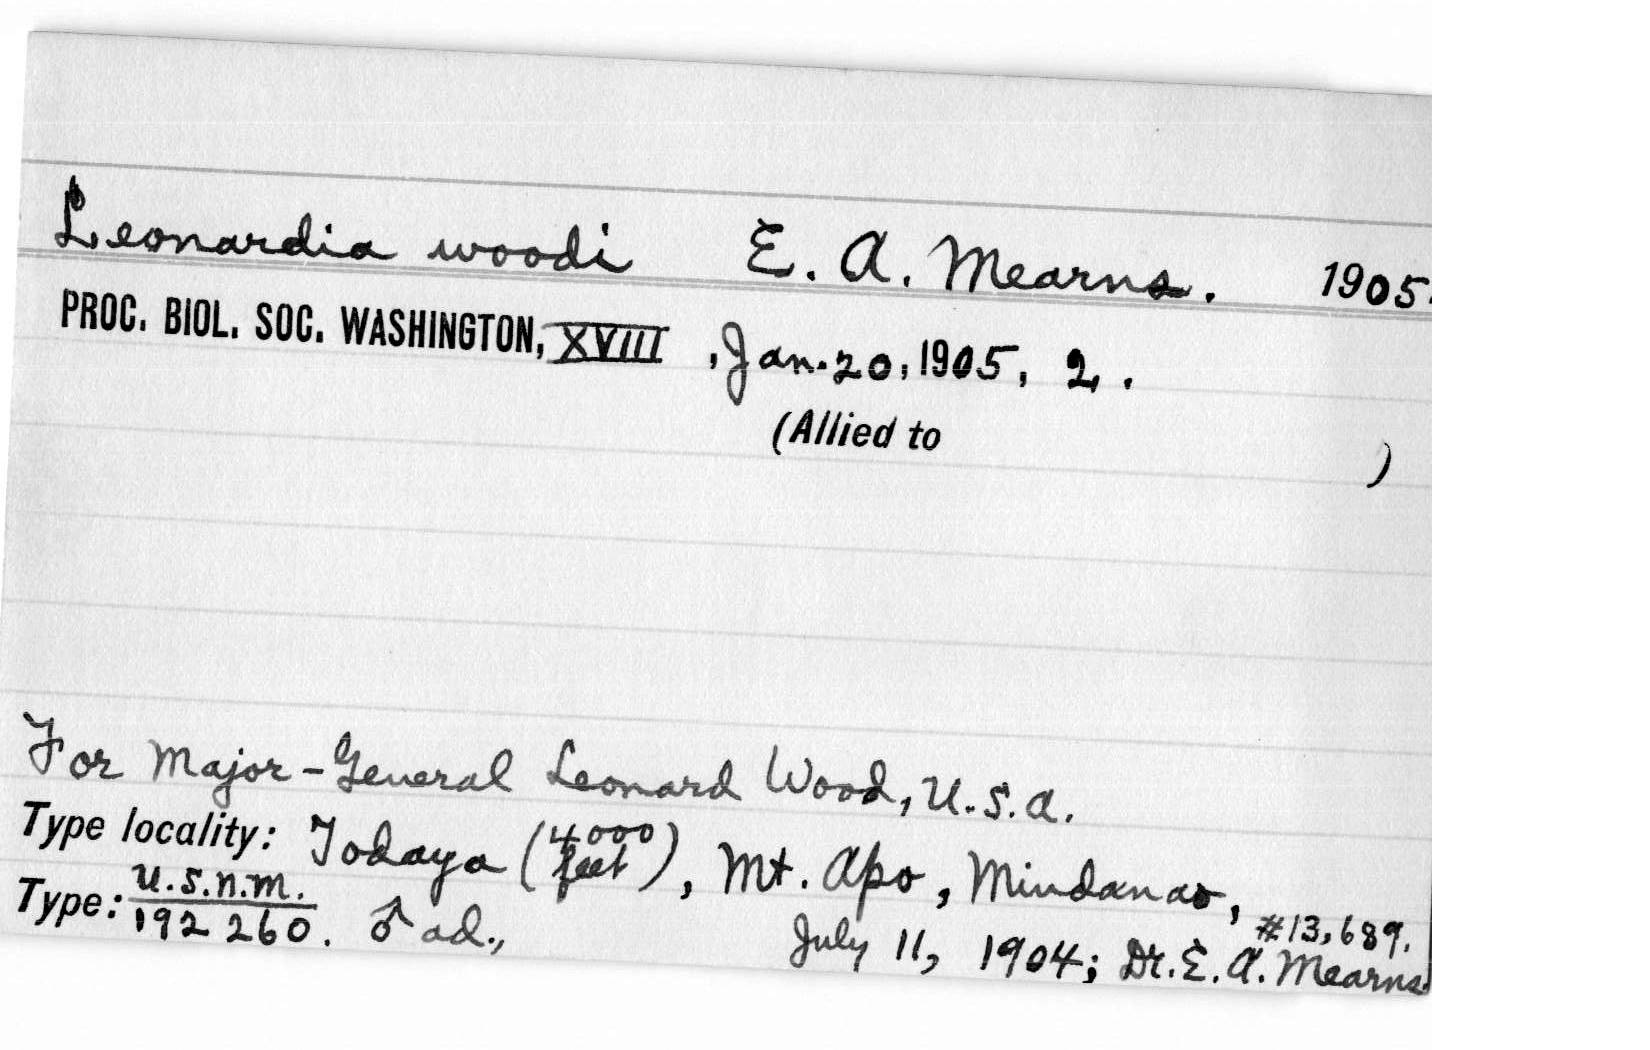 Leonardia woodi E. A. Mearns. 1905.
PROC. BIOL. SOC. WASHINGTON, XVIII, Jan. 20, 1905, 2.
(Allied to )
For Major-General Leonard Wood, U.S.A.
Type locality: Todaya (4000 feet), Mt. Apo, Mindanao,
Type: U.S.N.M. 192260. ♂ ad., July 11, 1904; #13,689. Dr. E. A. Mearns